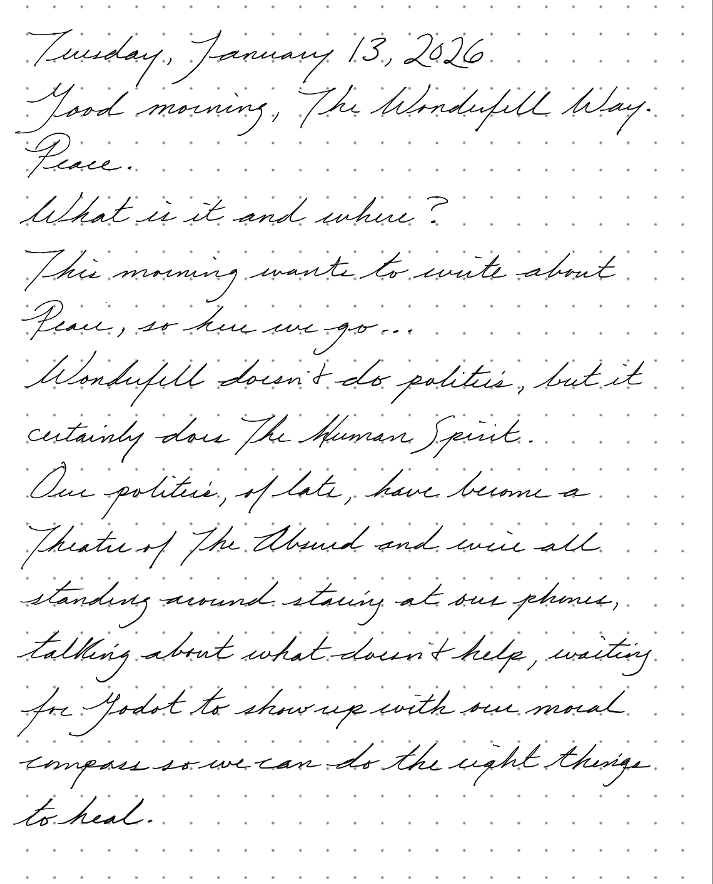 Tuesday, January 13, 2026
Good morning, The Wonderfell Way.
Peace.
What is it and where?
This morning wants to write about
Peace, so here we go...
Wonderfell doesn't do politics, but it
certainly does The Human Spirit.
Our politics, of late, have become a
Theatre of The Absurd and we're all
standing around staring at our phones,
talking about what doesn't help, waiting
for Godot to show up with our moral
compass so we can do the right things
to heal.